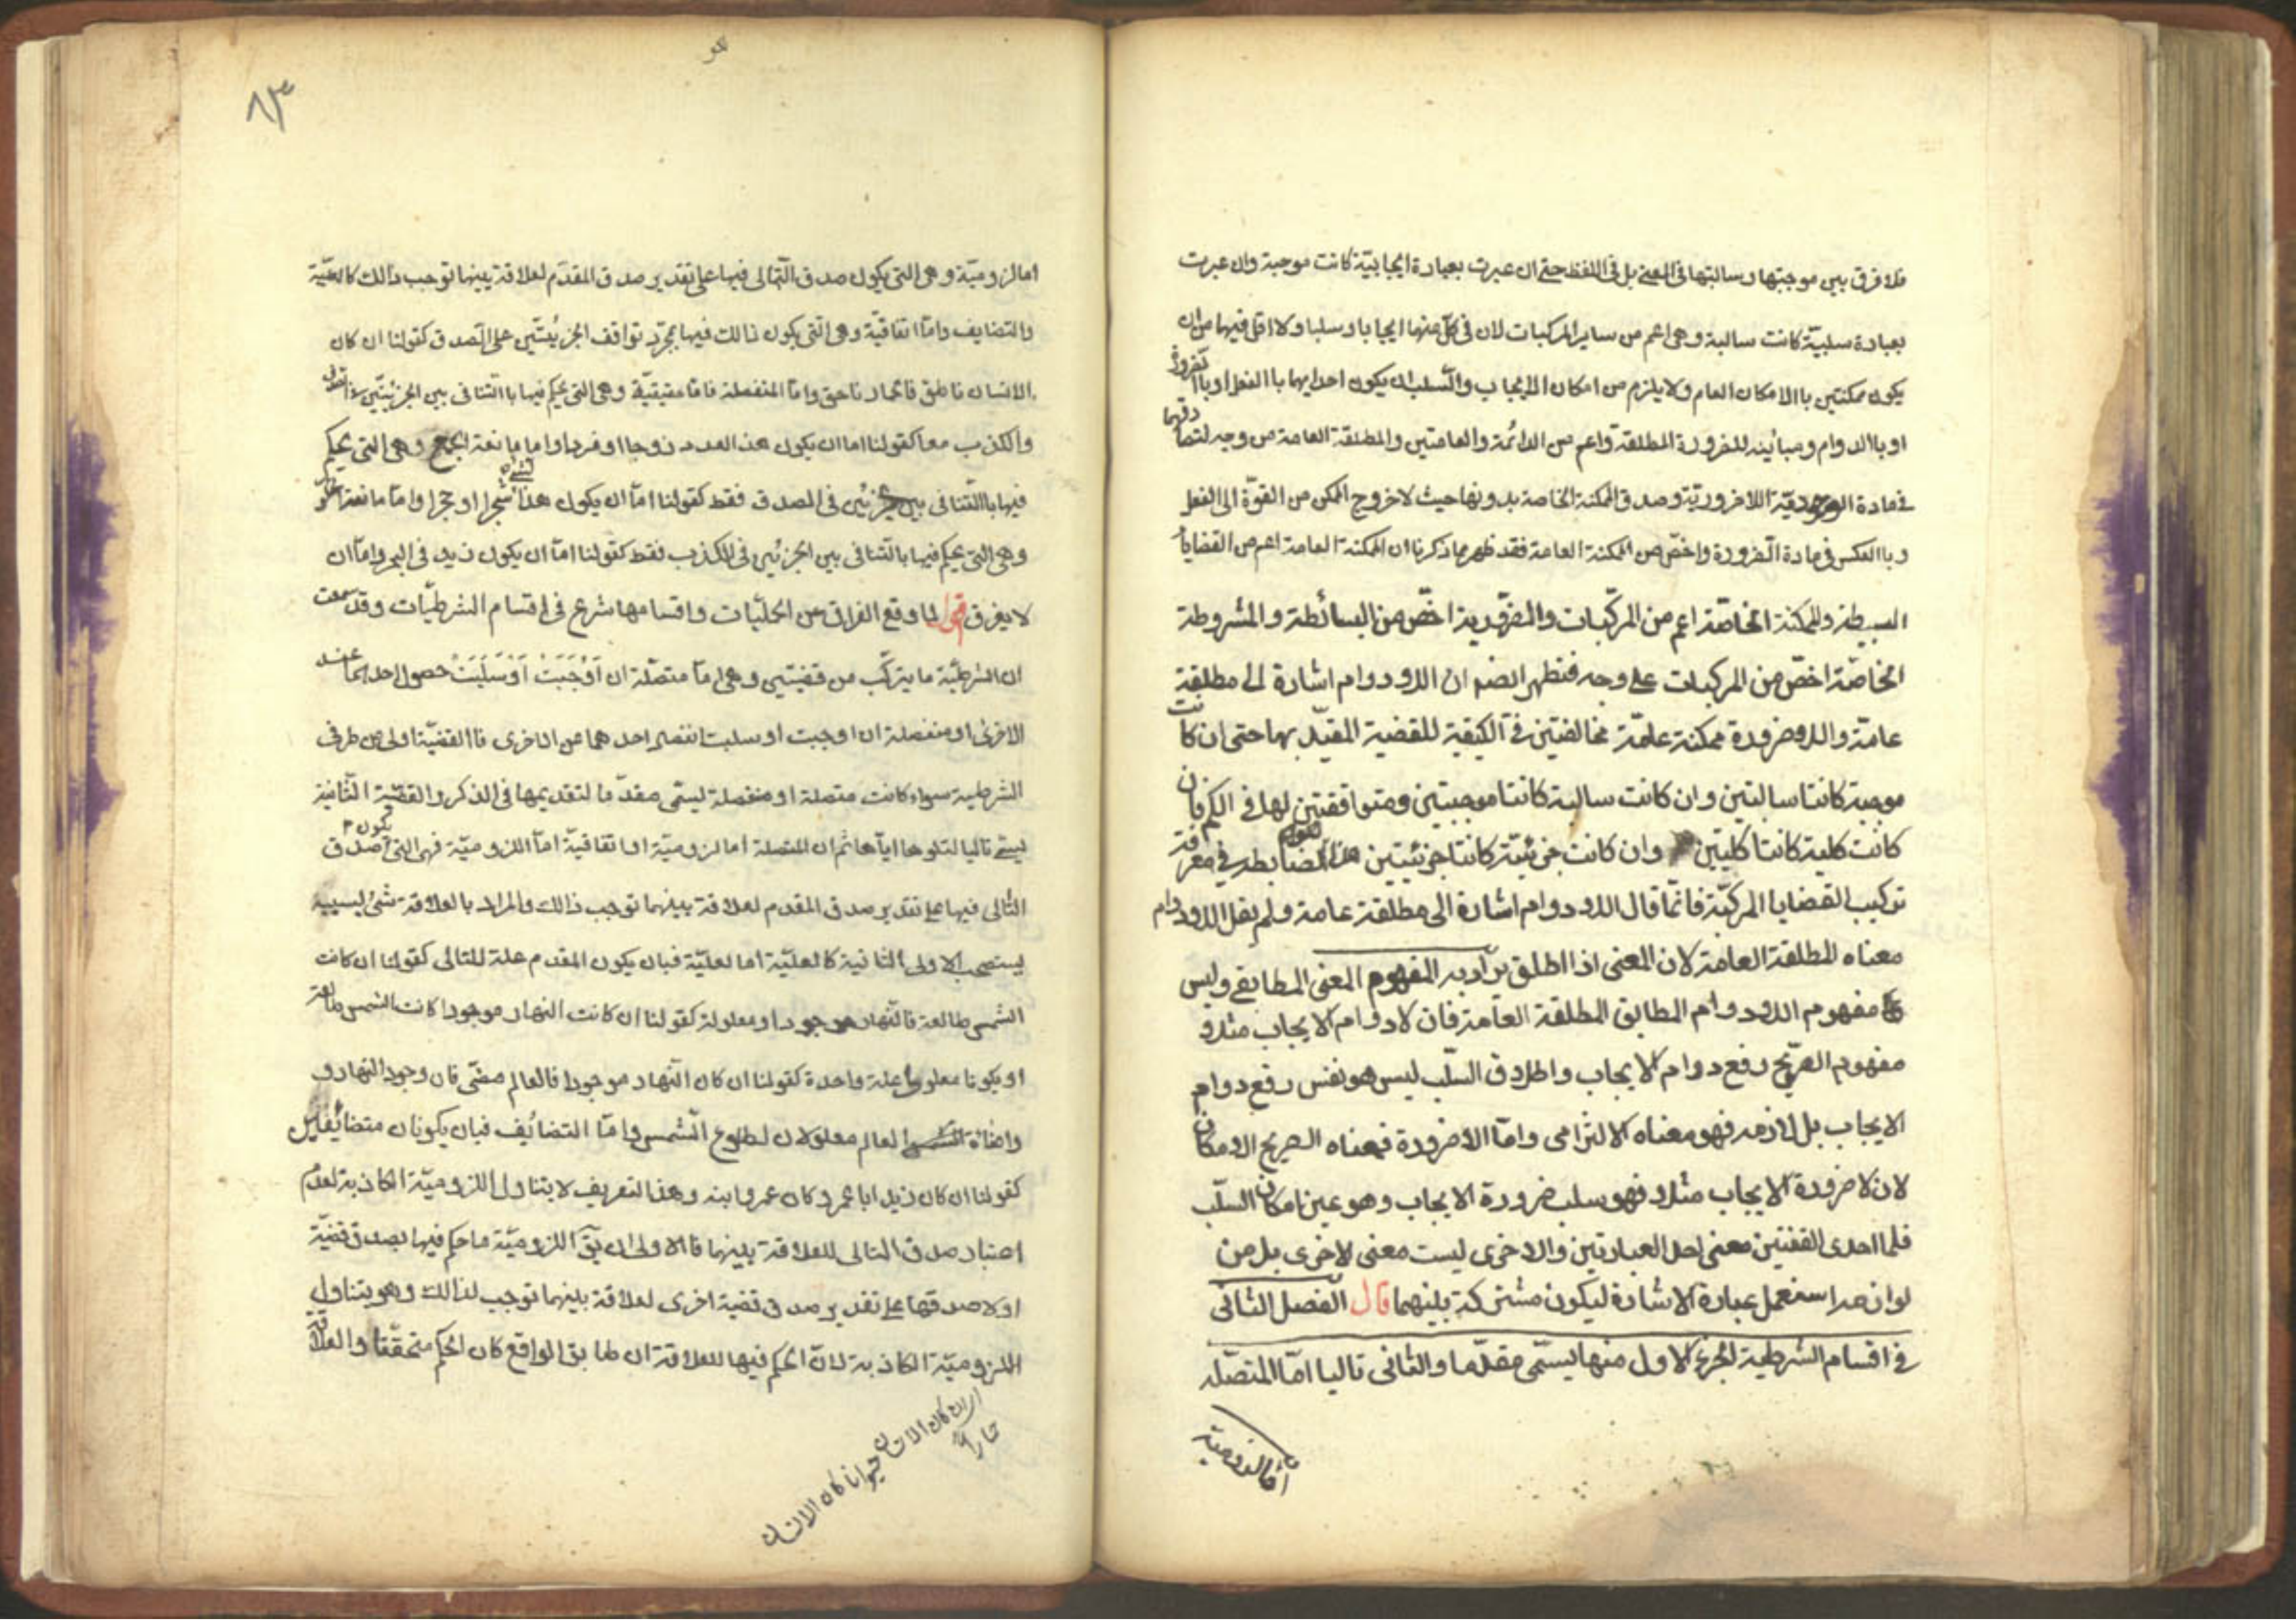 فلا فرق بين موجبتها وسالبتها فى المعنى بل فى اللفظ حتى ان عبرت بعبارة ايجابيّة كانت موجبة وان عبرت
بعبارة سلبيّة كانت سالبة وهى اعم من ساير المركبات لان فى كل منها ايجابا وسلبا ولا اقل فيها من ان
يكون ممكنتين باالامكان العام ولا يلزم من امكان الايجاب والسّلب ان يكون احدايهما باالفعل او باالضرورة
او باالدوام ومباينه للضرورة المطلقة واعم من الدائمة والعامتين والمطلقة العامة من وجه لتصادقهما
فى مادة الوجوديّة اللاضروريّة وصدق الممكنة الخاصة بدونها حيث لا خروج الممكن من القوّة الى الفعل
وباالعكس فى مادة الضرورة واخصّ من الممكنة العامة فقد ظهر مما ذكرنا ان الممكنة العامة اعم من القضايا
البسيطة والممكنة الخاصّة اعم من المركّبات والضرورية اخصّ من البسائطة والمشروطة
الخاصّة اخصّ من المركبات على وجه فتظهر ايضا ان اللادوام اشارة الى مطلقة
عامّة واللاضرورة ممكنة عامّة مخالفتين فى الكيفية للقضية المقيّد بها حتى ان كانت
موجبة كانتا سالبتين وان كانت سالبة كانتا موجبتين ومتوافقتين لها فى الكم فان
كانت كلية كانتا كليّتين وان كانت جزئيّة كانتا جزئيّتين هذا الضابطه فى معرفة
تركيب القضايا المركبّة فانّما قال اللادوام اشارة الى مطلقة عامة ولم يقل اللادوام
معناه المطلقة العامة لان المعنى اذا اطلق يراد به المفهوم المعنى المطابقى وليس
مفهوم اللادوام المطابق المطلقة العامّة فان لادوام الايجاب مثلا
مفهوم الصّريح رفع دوام الايجاب واطلاق السّلب ليس هو نفس رفع دوام
الايجاب بل لازمه فهو معناه الالتزامى وامّا اللاضرورة فمعناه الصريح الامكان
لان لاضرورة الايجاب مثلا فهو سلب ضرورة الايجاب وهو عين امكان السّلب
فلما احدى القضتين معنى احد العبارتين والاخرى ليست معنى الاخرى بل من
لوازمه استعمل عبارة الاشارة ليكون مشتركة بينهما قال الفصل الثانى
فى اقسام الشرطية الجزء الاول منها يسمّى مقدّما والثانى تاليا امّا المتصّله
امّا لزوميّة
٨٣
اما لزوميّة وهى التى يكون صدق التّالى فيها على تقدير صدق المقدّم لعلاقة بينها توجب ذالك كالعليّة
والتضايف وامّا اتفاقيّة وهى التى يكون ذالك فيها بمجرّد توافق الجزئيّتين على الصدق كقولنا ان كان
الانسان ناطق فالحمار ناهق وامّا المنفصلة فامّا حقيقيّة وهى التى يحكم فيها باالتنافى بين الجزئيّتين فى الصدق
والكذب معا كقولنا اما ان يكون هذا العدد زوجا او فردا واما مانعة الجمع وهى التى يحكم
فيها باالتنافى بين جزئين فى الصدق فقط كقولنا امّا ان يكون هذا الشئ شجرا او حجرا وامّا مانعة الخلو
وهى التى يحكم فيها بالتنافى بين الجزئين فى الكذب فقط كقولنا امّا ان يكون زيد فى البحر وامّا ان
لا يغرق اقول لما وقع الفراق من الحمليّات واقسامها شرع فى اقسام الشرطيّات وقد سمعت
ان الشرطيّة ما يتركّب من قضيتين وهى امّا متصّلة ان اَوْجَبَتْ اَوْسَلَبَتْ حصول احدهما عند
الاخرى او منفصلة ان اوجبت او سلبت انفصال احدهما عن الاخرى فاالقضيّة اولى من طرفى
الشرطية سواء كانت متصلة او منفصلة ليسّمى مقدّما لتقديمها فى الذكر والقضيّة الثّانية
يسمّى تاليا لتلوها ايّاها ثم ان المتصلة اما لزوميّة او اتفاقيّة امّا اللزوميّة فهى التى يكون صدق
التّالى فيها على تقدير صدق المقدم لعلاقة بينهما توجب ذالك والمراد بالعلاقة شئ بسببه
يستصحب الاولى الثانية كالعليّة اما لعليّة فبان يكون المقدم علة للتالى كقولنا ان كانت
الشمس طالعة فالنّهار موجودا او معلولة كقولنا ان كانت النهار موجودا كانت الشمس طالعة
او يكونا معلولى علة واحدة كقولنا ان كان النّهار موجودا فالعالم مضئ فان وجود النهار و
واضائة العالم معلولان لطلوع الشّمس وامّا التضائف فبان يكونان متضائفين
كقولنا ان كان زيد ابا عمرو كان عمروا ابنه وهذا التعريف لا يتناول اللزوميّة الكاذبة لعدم
اعتبار صدق التالى للعلاقة بينهما فالاولى ان يقّ اللزوميّة ما حكم فيها بصدق قضيّة
او لا صدقها على تقدير صدق قضية اخرى لعلاقة بينهما توجب لذالك وهو يتناول
اللزوميّة الكاذبة لانّ الحكم فيها للعلاقة ان طابق الواقع كان الحكم متحقّقا والعلاقة
ان كان الانسان حيوانا كان الانسان